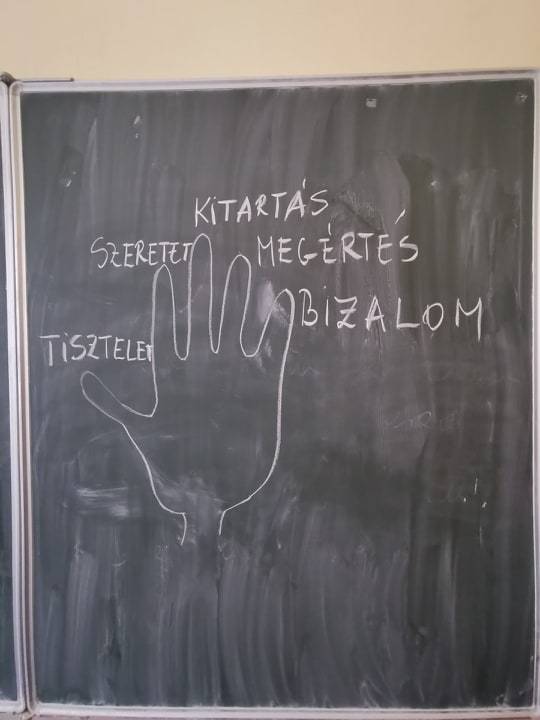 KITARTÁS
SZERETET
MEGÉRTÉS
BIZALOM
TISZTELET